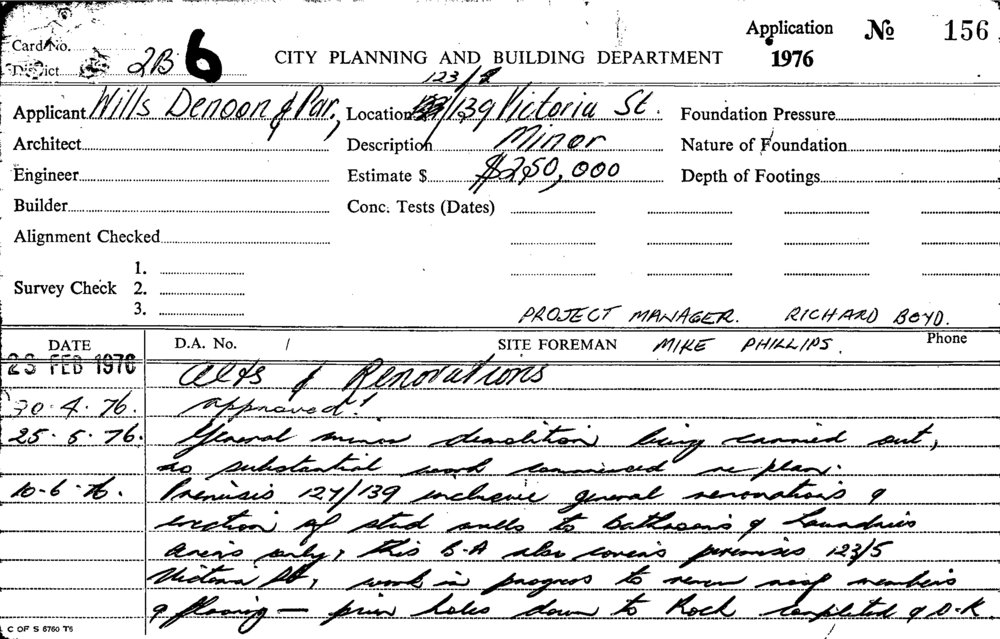 Application No 156
Card No.
District 2B 6 CITY PLANNING AND BUILDING DEPARTMENT 1976
123/
Applicant Wills Denoon & Par, Location /139 Victoria St. Foundation Pressure
Architect Description Minor Nature of Foundation
Engineer Estimate $ $250,000 Depth of Footings
Builder Conc. Tests (Dates)
Alignment Checked
1.
Survey Check 2.
3.
PROJECT MANAGER. RICHARD BOYD.
DATE D.A. No. / SITE FOREMAN MIKE PHILLIPS. Phone
23 FEB 1976 Alts & Renovations
30.4.76. approved!
25.5.76. General minor demolition being carried out,
no substantial work commenced re plan.
10-6-76. Premisis 127/139 inclusive general renovations &
erection of stud walls to bathrooms & Laundries
areas only, this B-A also covers premises 123/5
Victoria St, work in progress to renew roof members
& flooring — pier holes down to Rock completed & O-K.
C OF S 6760 T6